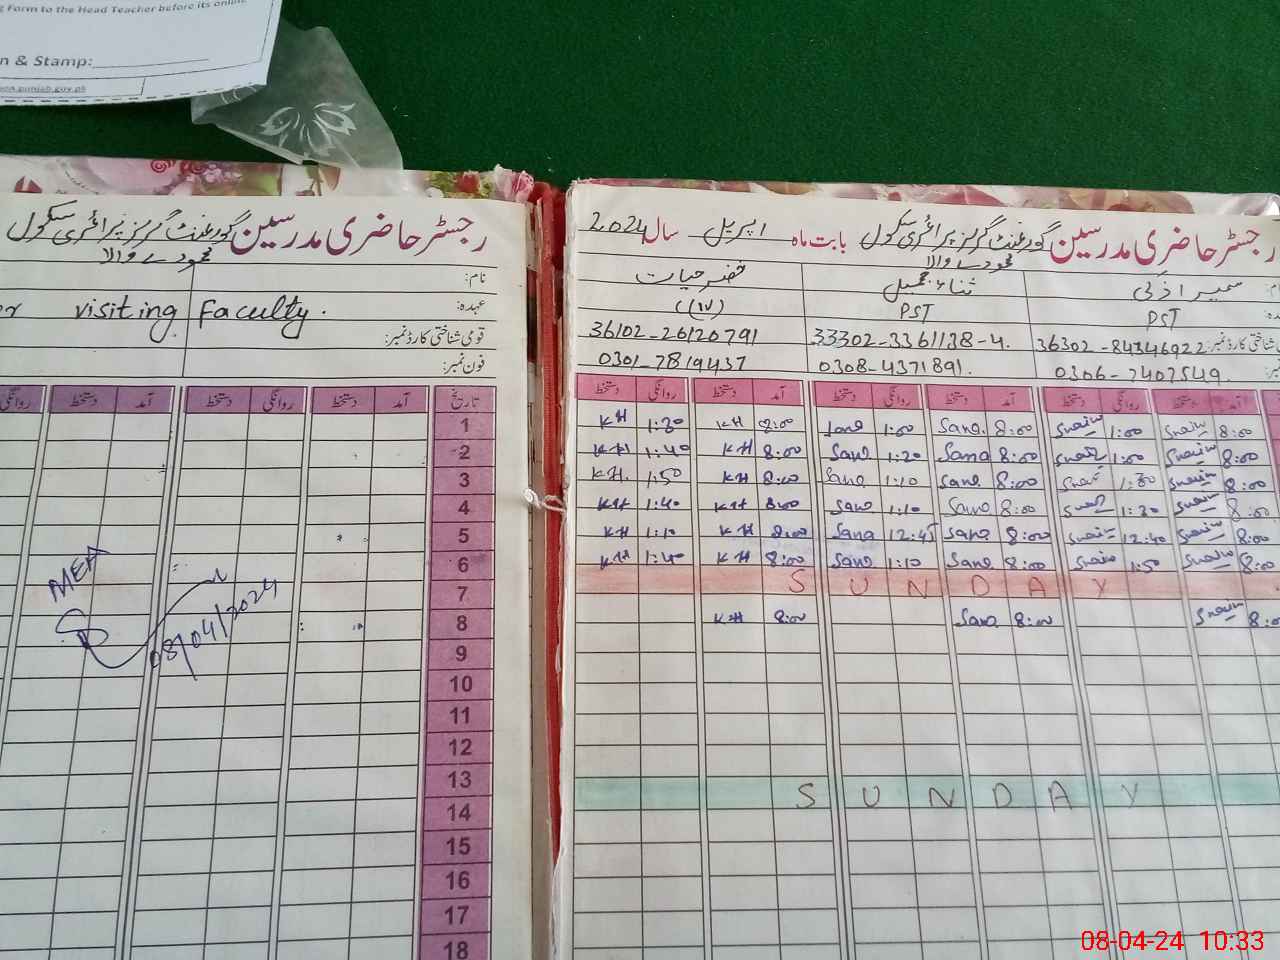 g Form to the Head Teacher before its online
n & Stamp:
رجسٹر حاضری مدرسین گورنمنٹ گرلز پرائمری سکول
محمودے والا
نام:
عہدہ: visiting Faculty.
قومی شناختی کارڈ نمبر:
فون نمبر:
تاریخ آمد دستخط روانگی دستخط آمد دستخط روانگی
1
2
3
4
5
6
7
8
9
10
11
12
13
14
15
16
17
18
MEA
08/04/2024
رجسٹر حاضری مدرسین گورنمنٹ گرلز پرائمری سکول بابت ماہ اپریل سال 2024
محمودے والا
سمیرا ذکی ثناء جمیل خضر حیات
PST PST (IV)
شناختی کارڈ نمبر: 36302-84346922 33302-3361138-4. 36102-26120791
0306-7407549 0308-4371891. 0301-7819437
آمد دستخط روانگی دستخط آمد دستخط روانگی دستخط آمد دستخط روانگی دستخط
KH 1:30 KH 8:00 Sana 1:00 Sana. 8:00 1:00 8:00
KH 1:40 KH 8:00 Sana 1:20 Sana 8:00 1:00 8:00
KH. 1:50 KH 8:00 Sana 1:10 Sana 8:00 1:30 8:00
KH 1:40 KH 8:00 Sana 1:10 Sana 8:00 1:20 8:00
KH 1:10 KH 8:00 Sana 12:45 Sana 8:00 12:40 8:00
KH 1:40 KH 8:00 Sana 1:10 Sana 8:00 1:50 8:00
S U N D A Y
KH 8:00 Sana 8:00 8:00
S U N D A Y
08-04-24 10:33